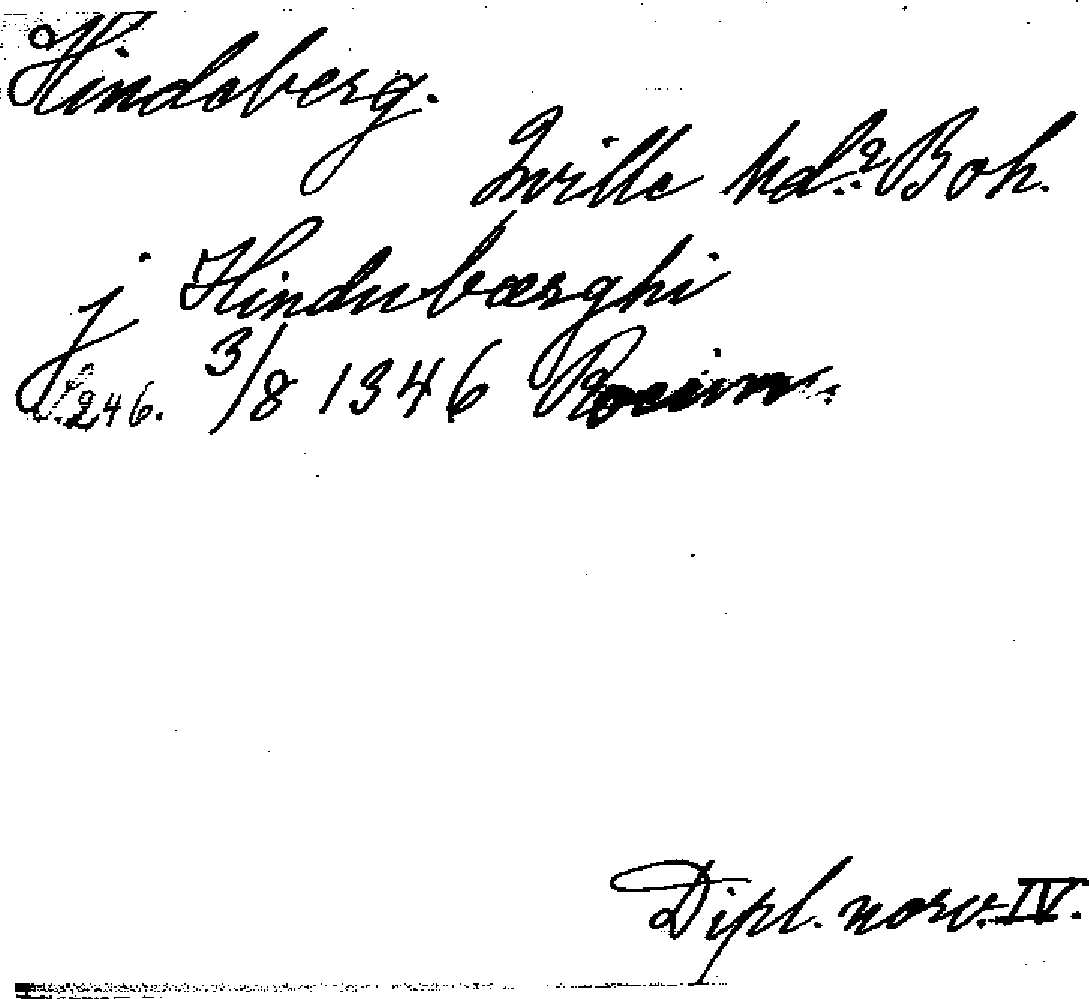 Hindeberg.
Inville hd? Boh.
j Hindubærghi
S. 246. 3/8 1346
Dipl. norv. IV.